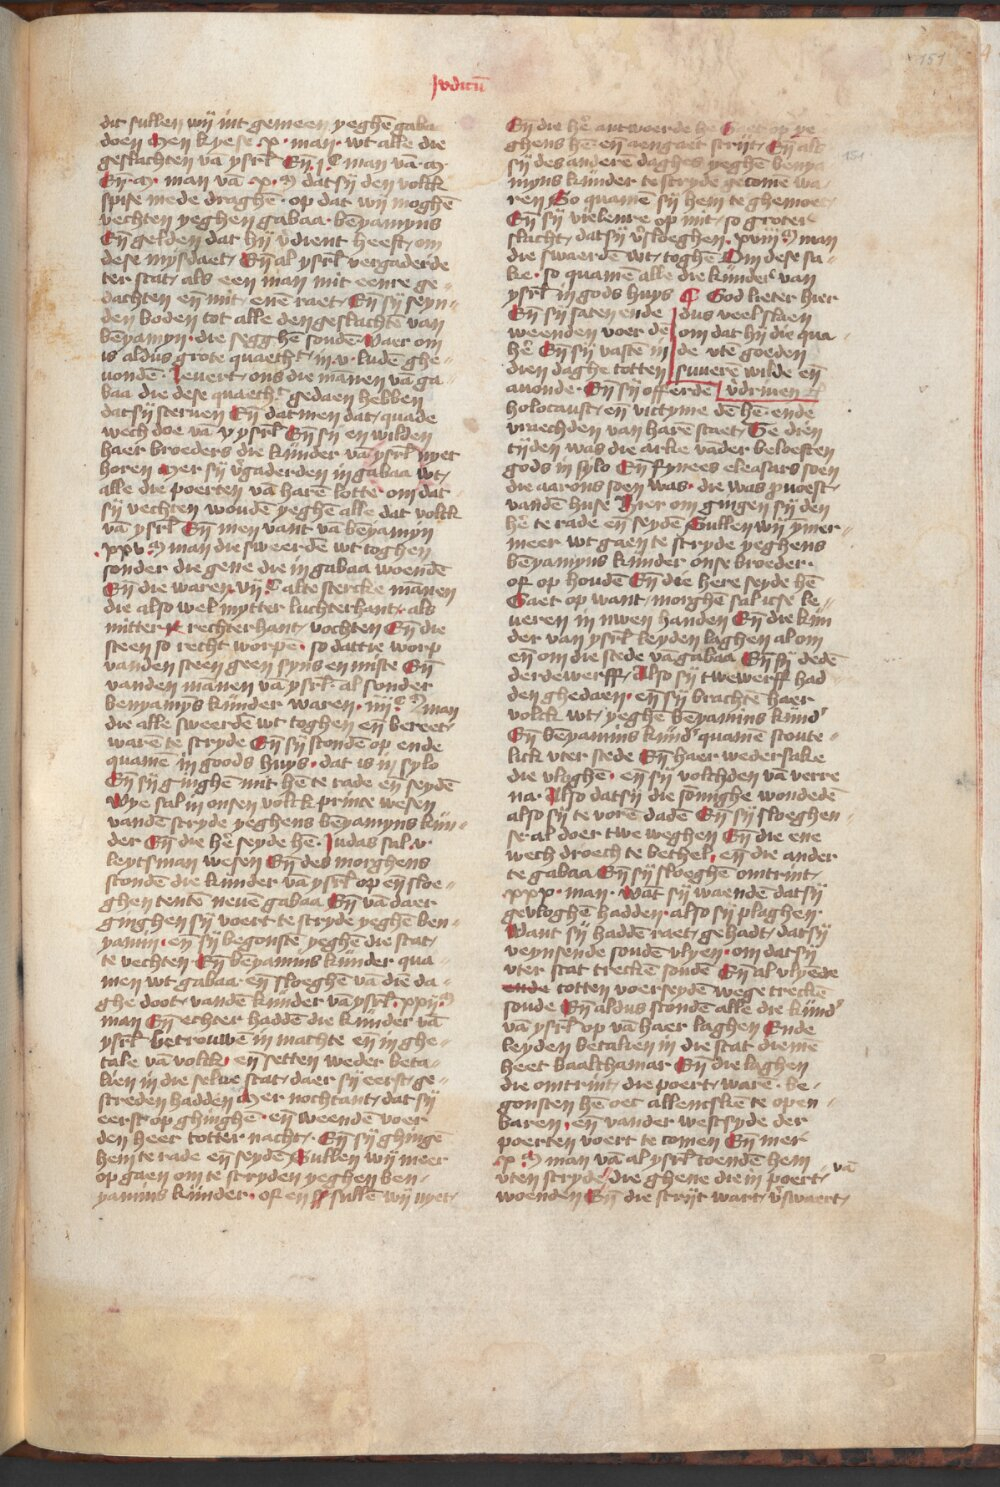 Judicũ
151
dit sullen wij mit gemeen yeghẽ gaba
doen Men kyese .x. man. wt alle die
geslachten vã ysrl̃ Eñ .j.C man vã .M.
Eñ .M. man vã .x.M dat sij den volck
spise mede draghẽ. op dat wij moghẽ
vechten yeghen gabaa. bẽyamyns
Eñ gelden dat hij v̾dient heeft, om
dese mysdaet, Eñ al ysrl̃ vergaderde
ter stat, als een man mit eenre ge-
dachten eñ mit, enẽ raet, Eñ sij seyn-
den boden tot alle den geslachtẽ van
bẽyamyn. die segghẽ soudẽ. Waer om
is aldus grote quaetht, in v. ludẽ ghe-
uondẽ. Leuert, ons die mãnen vã ga-
baa die dese quaeth.t gedaen hebben
dat sij steruen Eñ datmen dat, quade
wech doe vã v ysrl̃ Eñ sij en wilden
haer broeders die kijnder vã ysrl̃ nyet
horen Mer sij v̾gaderden in gabaa wt,
alle die poerten vã harẽ lotte. om dat
sij vechten woudẽ yeghẽ alle dat volck
vã ysrl̃ Eñ men vant vã bẽyamyn
.xxv.M man die sweerdẽ wt toghen
sonder die gene die in gabaa woendẽ
Eñ die waren .vij.C alte stercke mãnen
die also wel mytter luchterhant, als
mitter rechterhant, vochten Eñ die
steen so recht worpẽ. so dattie worp
vanden steen geen syns en miste Eñ
vanden mãnen vã ysrl̃. al sonder
benyamyns kijnder waren. .iiij.C M man
die alle sweerdẽ wt toghen eñ bereet,
warẽ te stryde Eñ sij stondẽ op ende
quamẽ in goods huys. dat is in sylo
Eñ sij ginghẽ mit hẽ te rade eñ seydẽ
Wye sal in onsen volck prince wesen
vandẽ stryde yeghens bẽyamyns kijn-
der Eñ die hẽ seyde hẽ. Judas sal v.
leytsman wesen Eñ des morghens
stondẽ die kinder vã ysrl̃ op eñ sloe-
ghen tentẽ neuẽ gabaa Eñ vã daer
ginghen sij voert te stryde yeghẽ ben-
yamin. eñ sij begonstẽ yeghẽ die stat,
te vechten. Eñ bẽyamins kijnder qua-
men wt gabaa. eñ sloeghẽ vã diẽ da-
ghe doot, vandẽ kijnder vã ysrl̃. .xxij.M
man Eñ echter haddẽ die kijnder vã
ysrl̃ betrouwẽ in machte eñ in ghe-
tale vã volck, eñ setten weder beta-
lien in die selue stat, daer sij eerst, ge-
streden hadden Mer nochtant, dat sij
eerst op ghinghẽ. eñ weendẽ voer
den heer totter nacht,. Eñ sij ghingẽ
hem te rade eñ seydẽ Sullen wij meer
op gaen om te stryden yeghen ben-
yamins kijnder. of en sullẽ wij nyet,
Eñ die hẽ antwoerde hẽ Gaet op ye-
ghens hẽ eñ aengaet strijt, Eñ als
sij des anderẽ daghes yeghẽ benya
myns kijnder te strydẽ gecomẽ wa-
ren So quamẽ sij hem te ghemoet,
Eñ sij vielenre op mit, so groter
slacht, dat sij v̾sloeghen .xviij.M man
die swaerdẽ wt, toghẽ Om dese sa-
ke. so quamẽ alle die kijnder van
ysrl̃ in gods huys
Eñ sij saten ende
weenden voer dẽ
hẽ Eñ sij vastẽ in
dien daghe totten
auonde. Eñ sij offerdẽ
God lieter hier
dus veel slaen
om dat hij die qua
de vtẽ goeden
suuerẽ wilde eñ
v̾driuen
holocaust, eñ victyme dẽ hẽ. ende
vraechden van harẽ staet, Te dien
tijden was die arke vãder beloeften
gods in sylo Eñ fynees eleasars soen
die aarons soen was. die was p̾uoest,
vandẽ huse Hier om gingen sij den
hẽ te rade eñ seydẽ Sullen wij ymer-
meer wt gaen te stryde yeghens
bẽyamyns kijnder onse broeder.
of op houdẽ Eñ die here seyde hẽ
Gaet op want, morghẽ sal icse le-
ueren in uwen handen Eñ die kijn
der van ysrl̃ leyden laghen al om
eñ om die stede vã gabaa Eñ sij dedẽ
derdewerff, Also sij twewerff had
den ghedaen. eñ sij brachtẽ haer
volck wt, yeghẽ bẽyamins kijnd̾
Eñ bẽyamins kijnd̾ quamẽ stoute-
lick vter stede Eñ haer wedersake
die vloghẽ. eñ sij volchden vã verre
na. Also dat sij die sõmighe wondedẽ
also sij te vorẽ dadẽ Eñ sij sloeghen-
se. al doer twe weghen Eñ die ene
wech droech te bethel, eñ die ander
te gabaa Eñ sij sloeghẽ omtrint,
.xxx. man. Wãt sij waendẽ dat sij
gevloghẽ hadden. also sij plaghen.
Want sij haddẽ raet, gehadt, dat sij
veynsende soudẽ vlyen. om dat sij
vter stat treckẽ soudẽ Eñ al vlyede
ende totten voerseydẽ wege treckẽ
soude Eñ aldus stondẽ alle die kijnd̾
vã ysrl̃ op vã haer laghen Ende
leyden betalien in die stat diemẽ
heet baalthamar Eñ die laghen
die omtrint, die poert, warẽ. be-
gonsten hẽ oec allencskẽ te open-
baren, eñ vander westsyde der
poerten voert te comen Eñ mer
.x.M man vã al ysrl̃ toendẽ hem
vten strydẽ / die ghene die in poert, vã
woenden Eñ die strijt wart, v̾swaert,